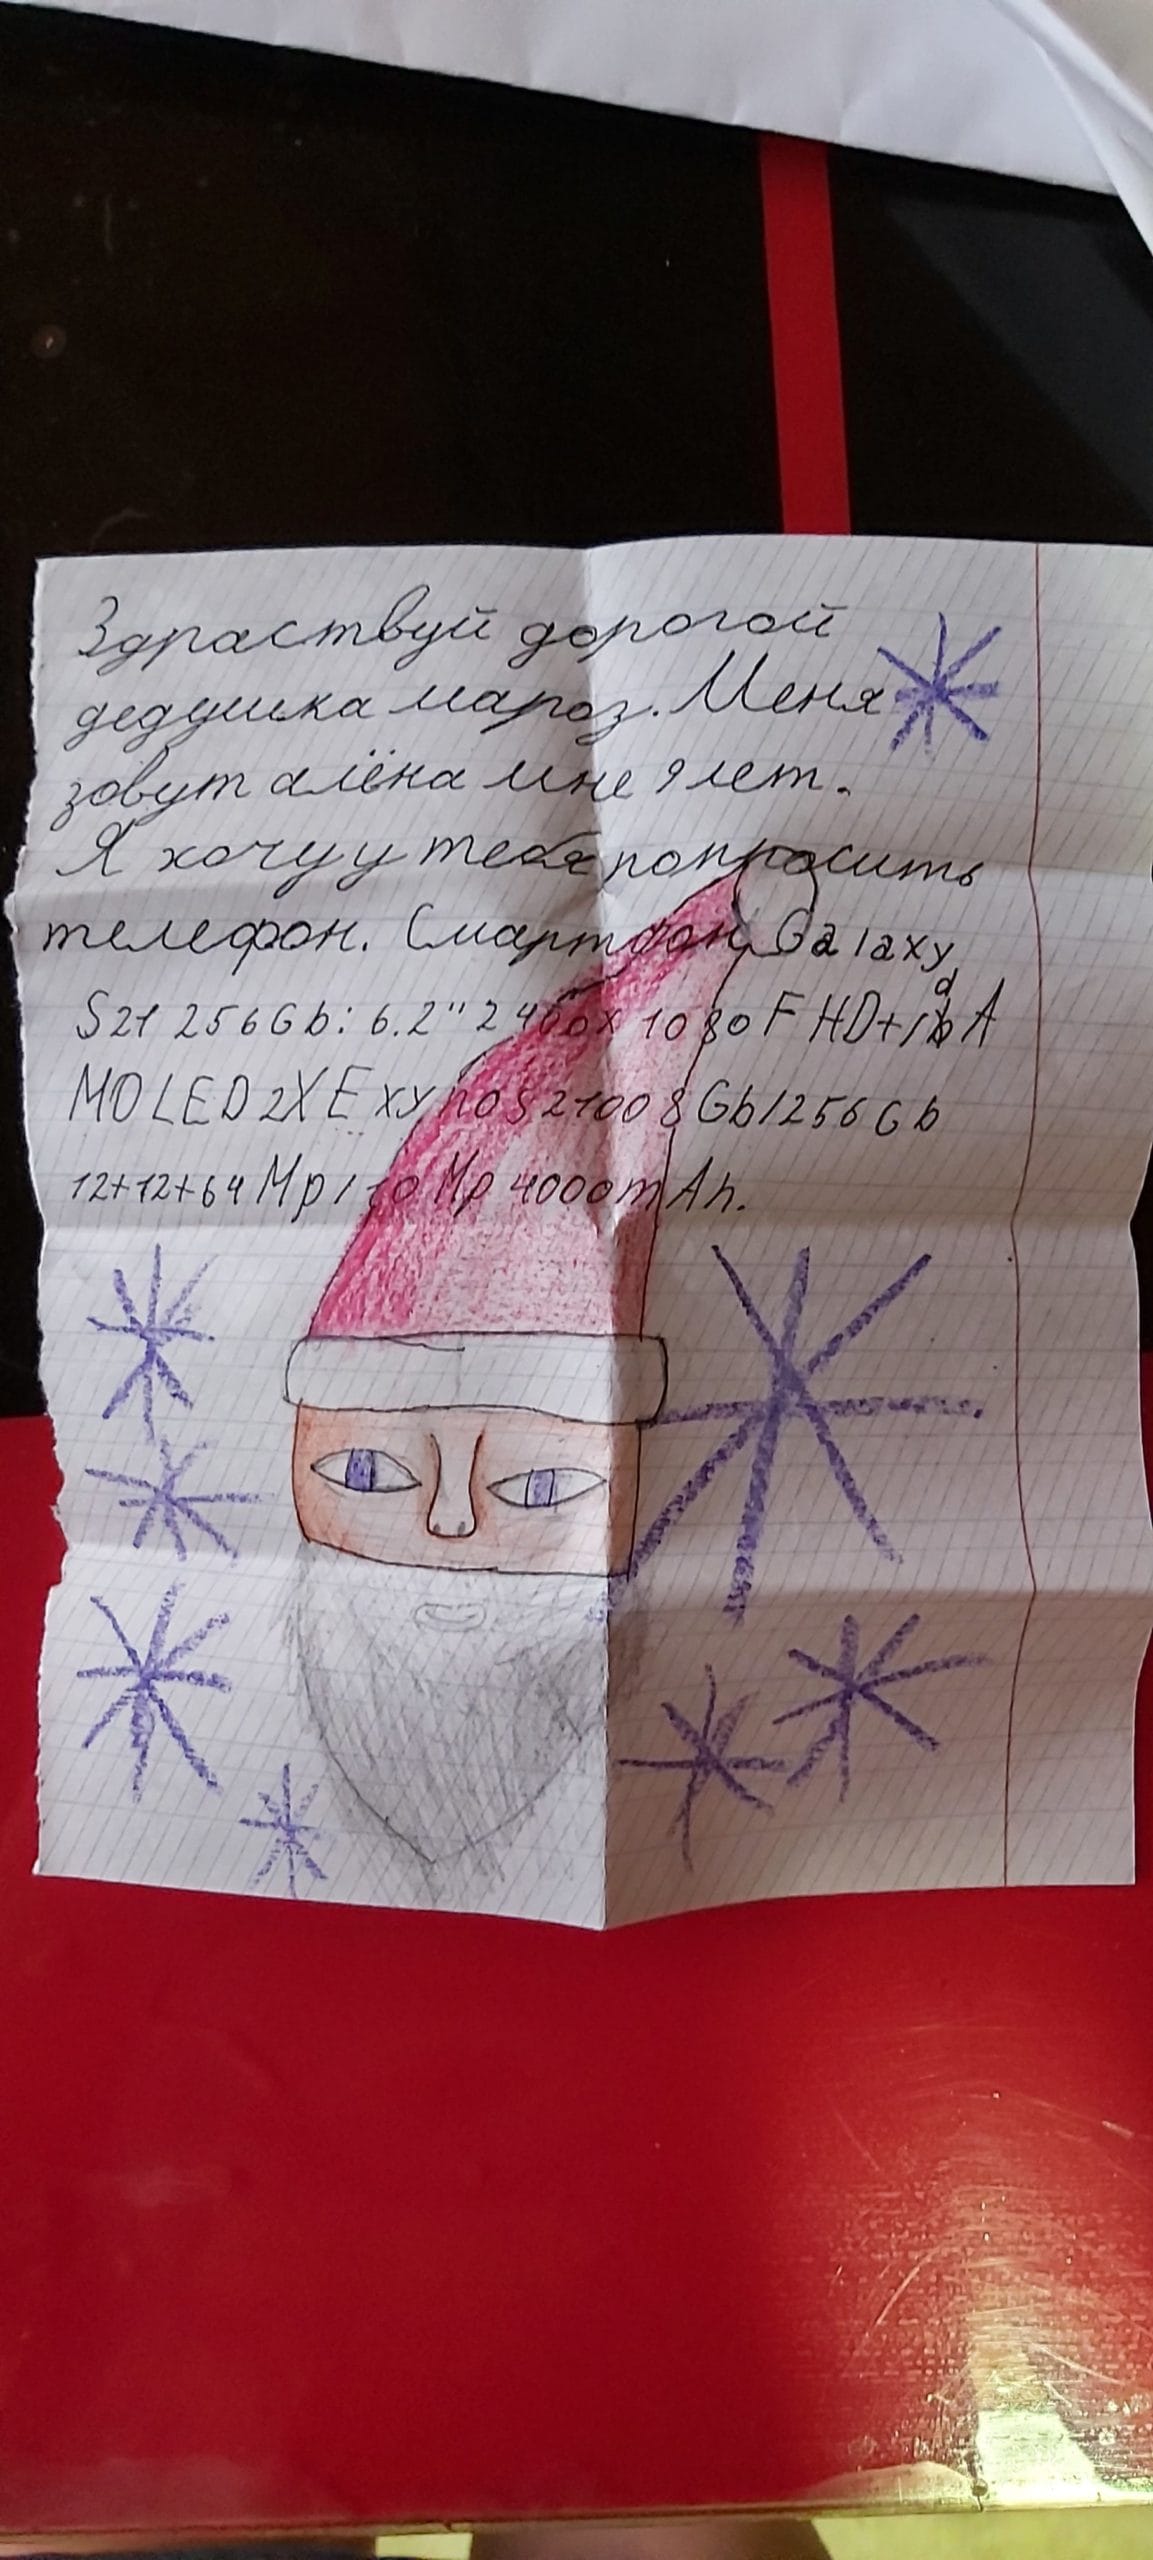 Здраствуй дорогой
дедушка мароз. Меня
зовут алёна мне 9 лет.
Я хочу у тебя попросить
телефон. Смартфон Galaxy
S21 256Gb: 6.2" 2400x1080 FHD+/d A
MOLED 2X Exynos 2100 8Gb/256Gb
12+12+64Mp/10Mp 4000mAh.